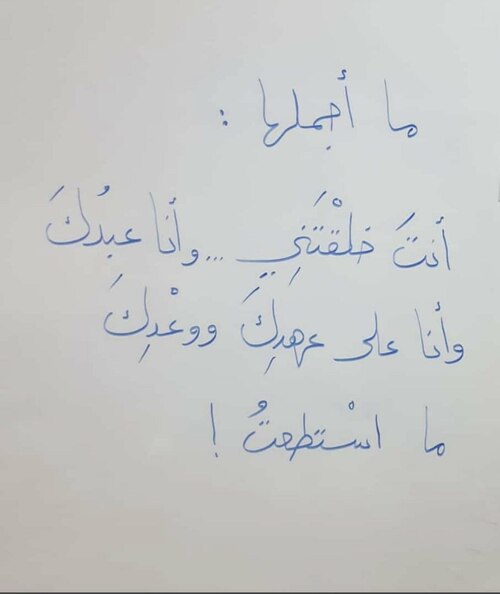 ما أجملها :
أنتَ خلقْتَنِي ... وأنا عبدُكَ
وأنا على عهدِكَ ووعْدِكَ
ما اسْتطعتُ !